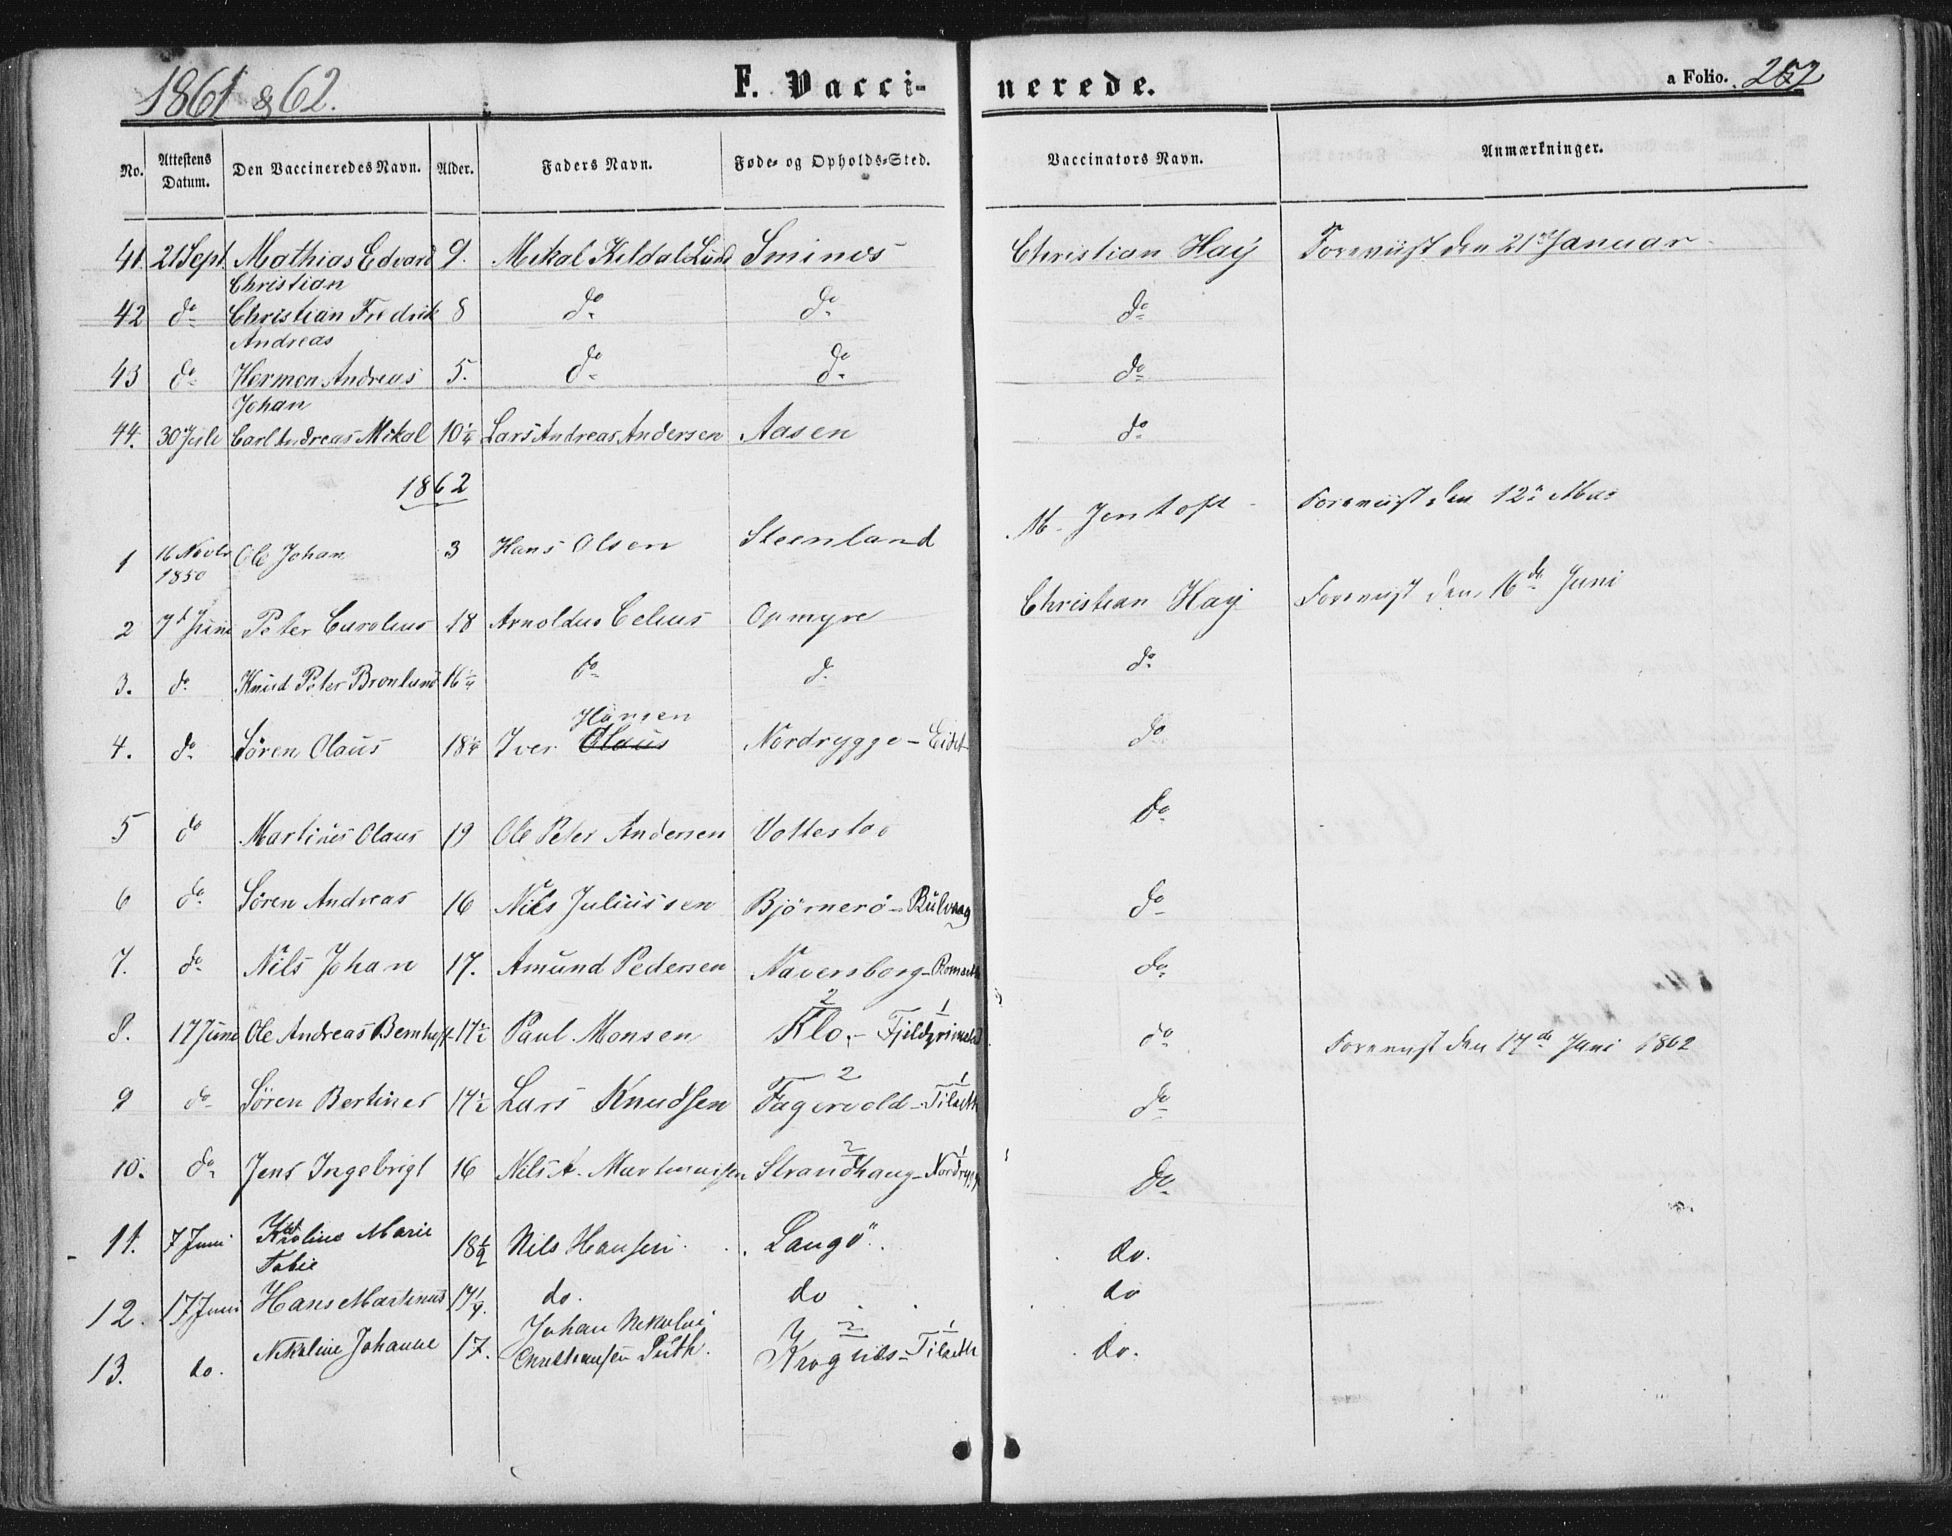 1861 & 62.
F. Vacci-
nerede.
a Folio. 252
No. Attestens Datum. Den Vaccineredes Navn. Alder. Faders Navn. Føde- og Opholds-Sted. Vaccinators Navn. Anmærkninger.
41. 21 Sept. Mathias Edvard 9. Mikal Kildal Lund Smines Christian Haÿ Foreviist den 21de Januar
Christian
42 do Christian Fredrik 8 do do do
Andreas
43 do Herman Andreas 5. do do do
Johan
44. 30 Carl Andreas Mikal 10¼ Lars Andreas Andersen Aasen do
1862
1 16 Novbr Ole Johan 3 Hans Olsen Steenland M. Jentoft Foreviist den 12te Mai
1850
2 7de Juni Peter Carolius 18 Arnoldus Celius Opmyre Christian Haÿ Foreviist den 16de Juni
3. do Knud Peter Bronlund 16¼ do do do
Hansen
4. do Søren Olaus 18¼ Iver Olaus Nordrygge - Eidet do
5 do Martines Olaus 19 Ole Peter Andersen Vottestad do
6 do Søren Andreas 16 Nils Juliussen Bjørnerø - Rulvaag do
7. do Nils Johan 17. Amund Pedersen Naversborg - Romseth do
2 1
8. 17 Juni Ole Andreas Bernhoft 17½ Paul Monsen Klo. - do Foreviist den 17de Juni 1862
2 1
9 do Søren Bertines 17½ Lars Knudsen Fagervold - Tilseth do
2 1
10. do Jens Ingebrigt 16 Nils A. Martinussen Strandhaug - Nordrygg do
11. 7 Juni Marie 18½ Nils Hansen. Langø. do.
Tobie
12. 17 Juni Hans Martinus 17¼. do. do do
Johan Nikolai 2 1
13. do. Nikoline Johanne 17. Christiansen - Tilseth do.